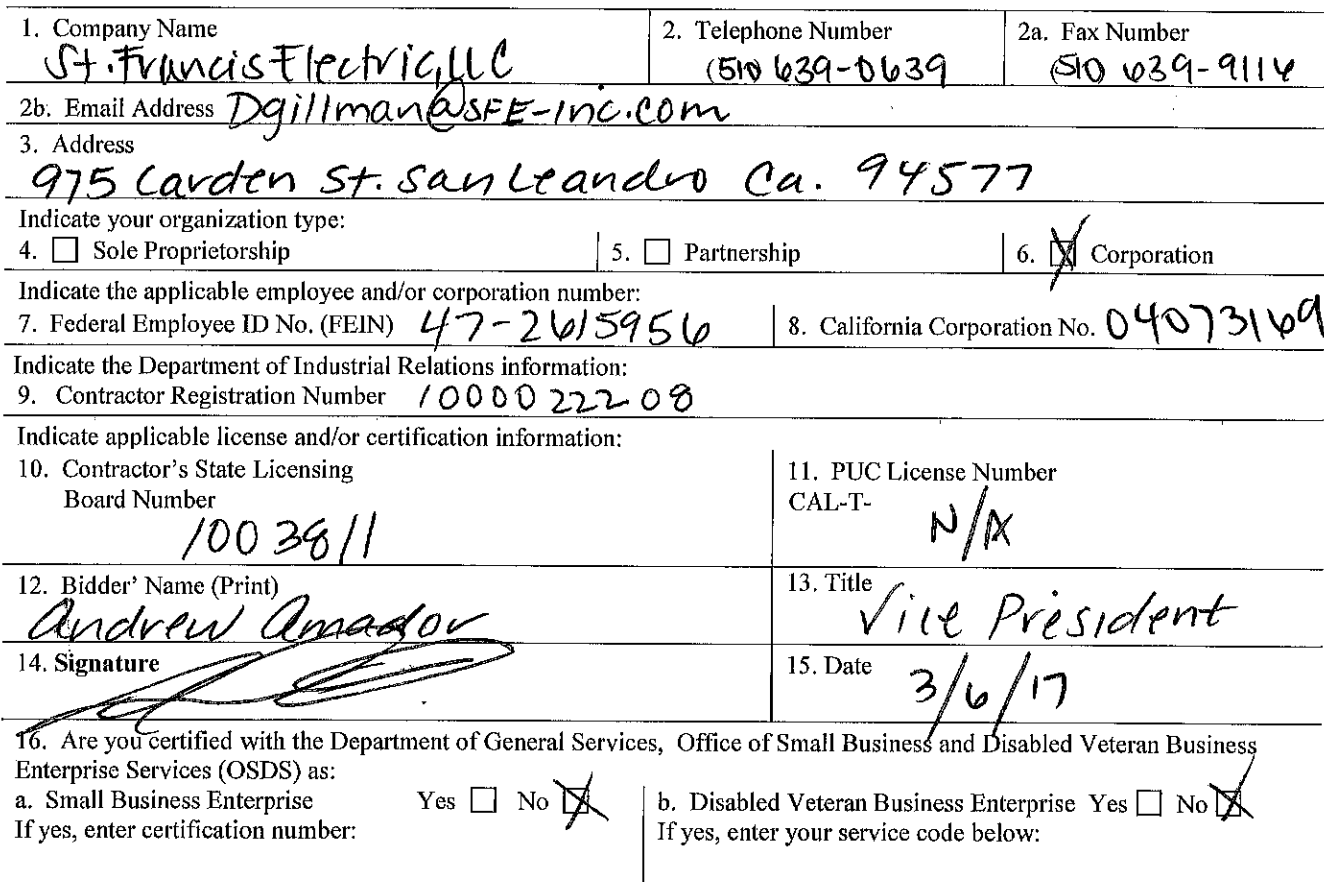 1. Company Name 2. Telephone Number 2a. Fax Number
St. Francis Electric, LLC (510 639-0639 (510 639-9116
2b. Email Address Dgillman@SFE-Inc.com
3. Address
975 Carden St. San Leandro Ca. 94577
Indicate your organization type:
4. ☐ Sole Proprietorship 5. ☐ Partnership 6. ☒ Corporation
Indicate the applicable employee and/or corporation number:
7. Federal Employee ID No. (FEIN) 47-2615956 8. California Corporation No. 04073169
Indicate the Department of Industrial Relations information:
9. Contractor Registration Number 1000022208
Indicate applicable license and/or certification information:
10. Contractor's State Licensing 11. PUC License Number
Board Number CAL-T-
1003811 N/A
12. Bidder' Name (Print) 13. Title
Andrew Amador Vice President
14. Signature 15. Date
3/6/17
16. Are you certified with the Department of General Services, Office of Small Business and Disabled Veteran Business
Enterprise Services (OSDS) as:
a. Small Business Enterprise Yes ☐ No ☒ b. Disabled Veteran Business Enterprise Yes ☐ No ☒
If yes, enter certification number: If yes, enter your service code below: